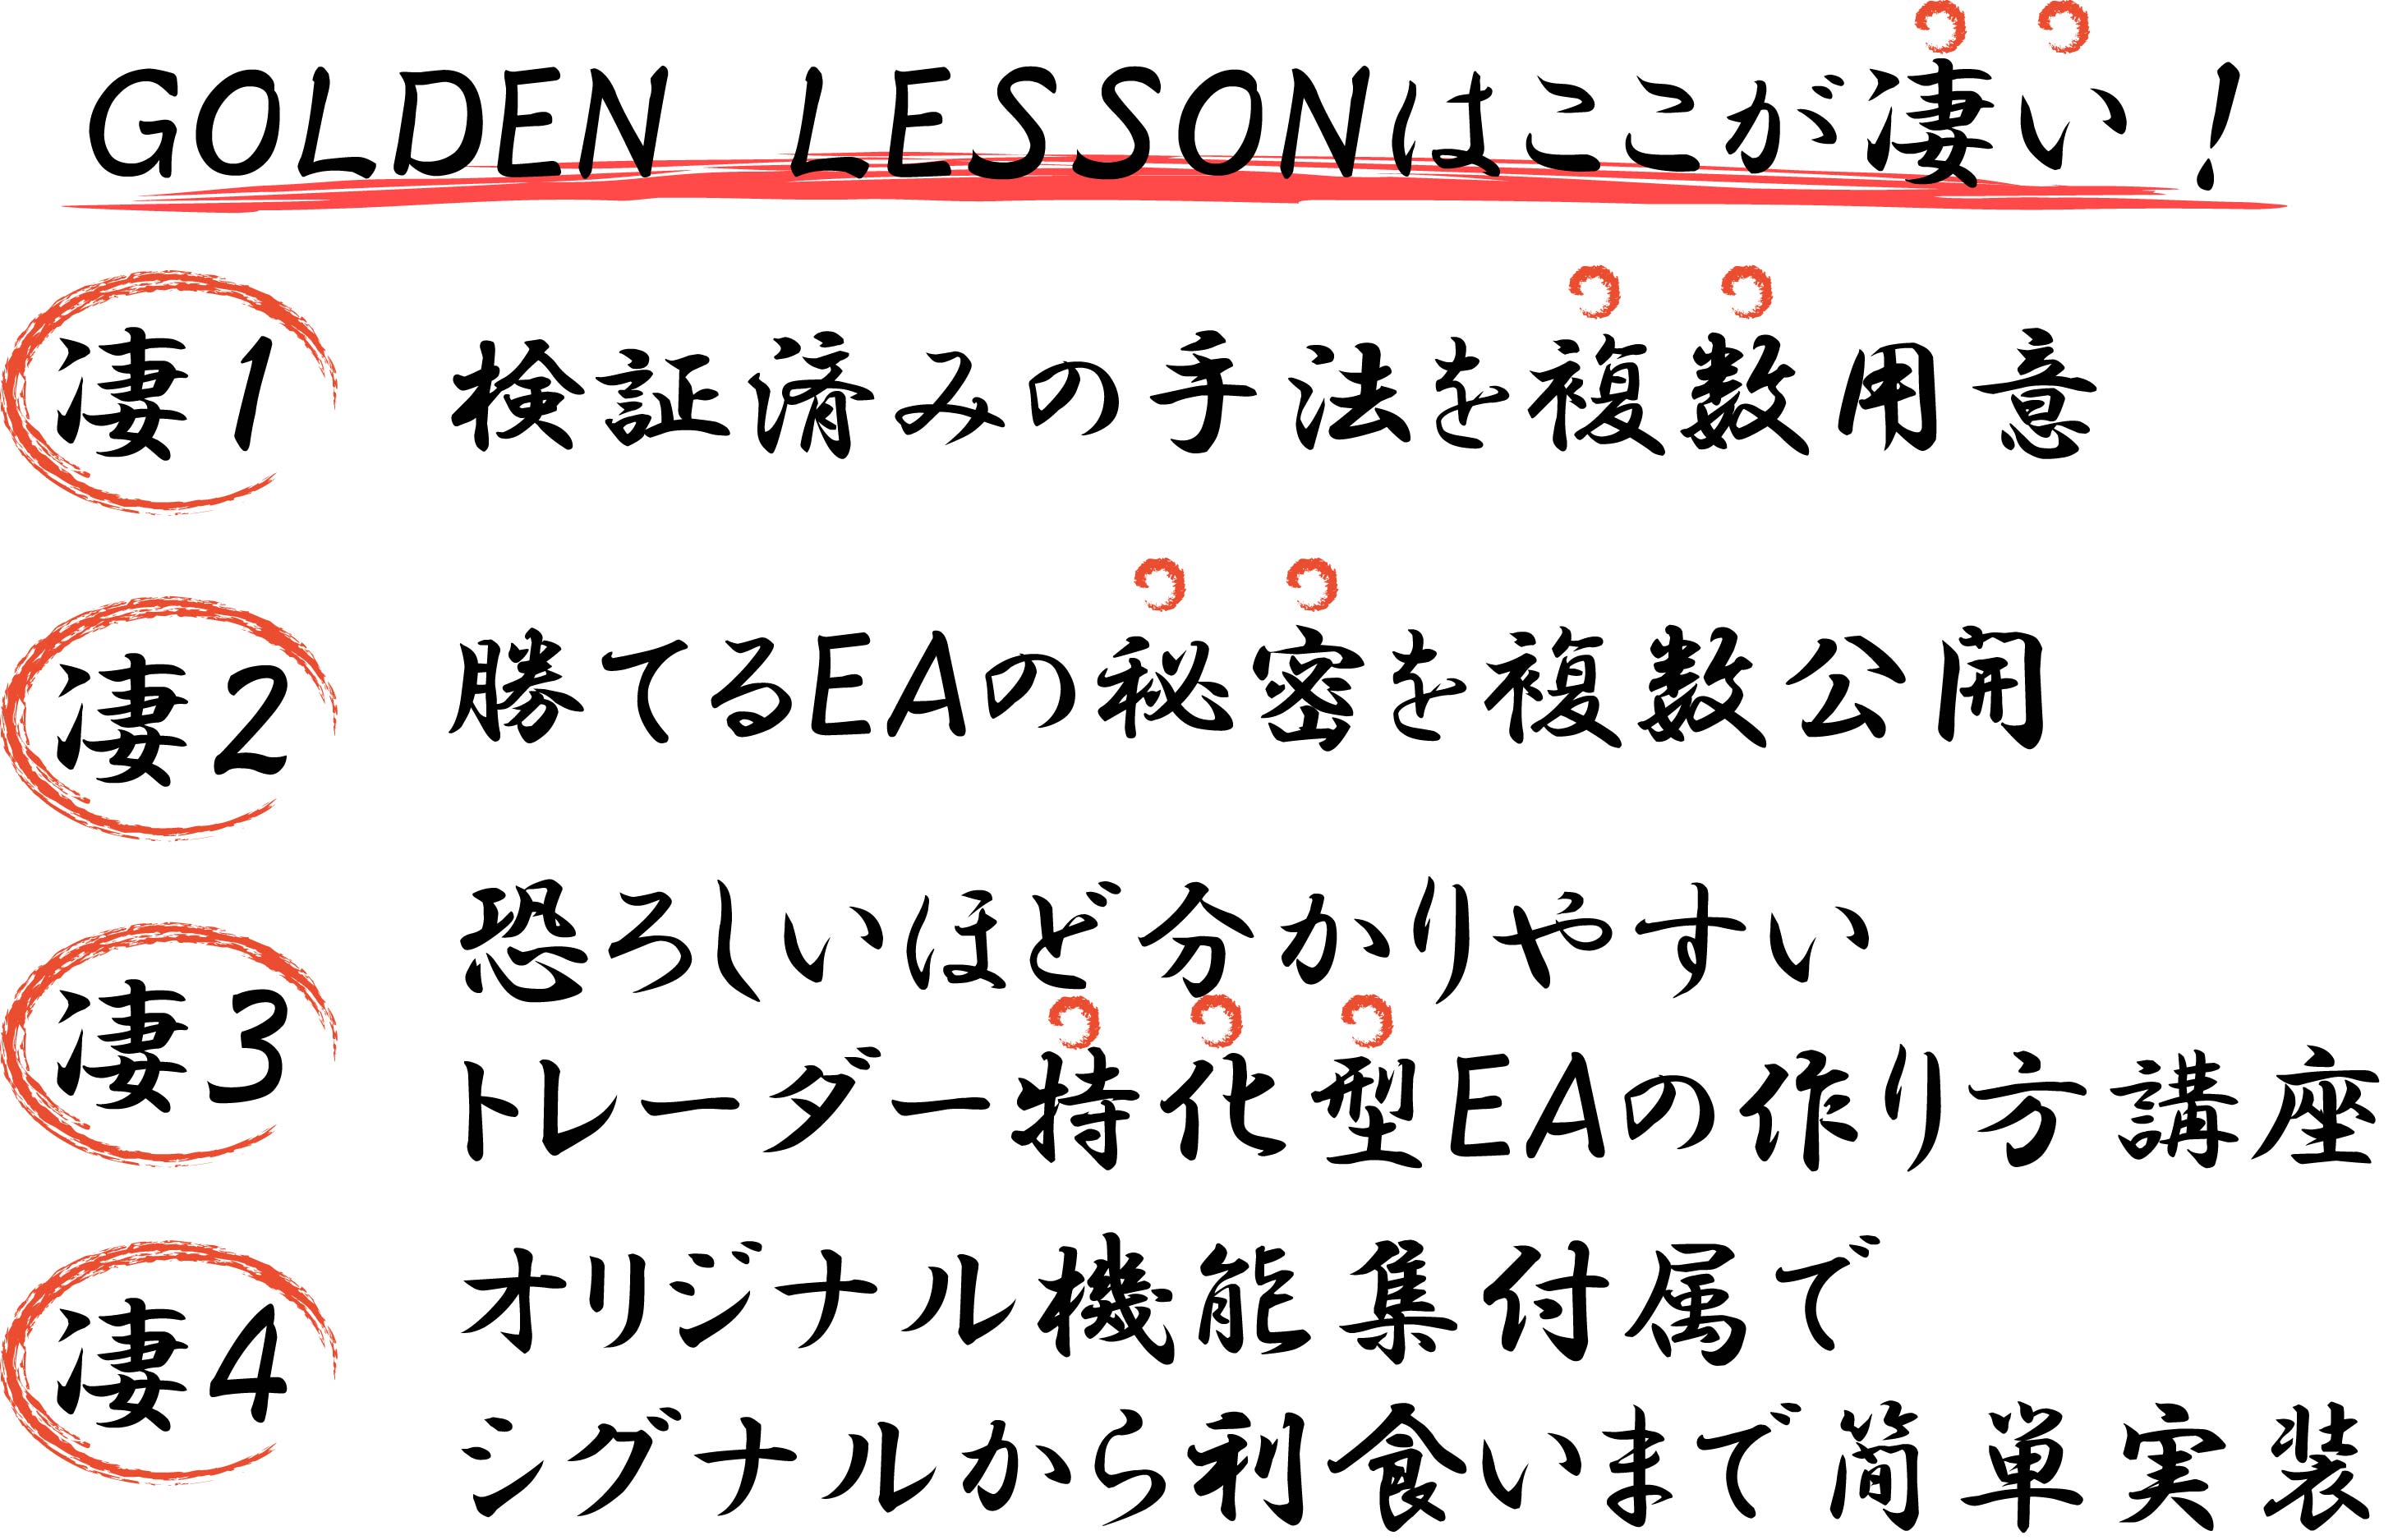 GOLDEN LESSONはここが凄い!
凄1 検証済みの手法を複数用意
凄2 勝てるEAの秘密を複数公開
恐ろしいほど分かりやすい
凄3 トレーダー特化型EAの作り方講座
凄4 オリジナル機能集付属で
シグナルから利食いまで簡単実装